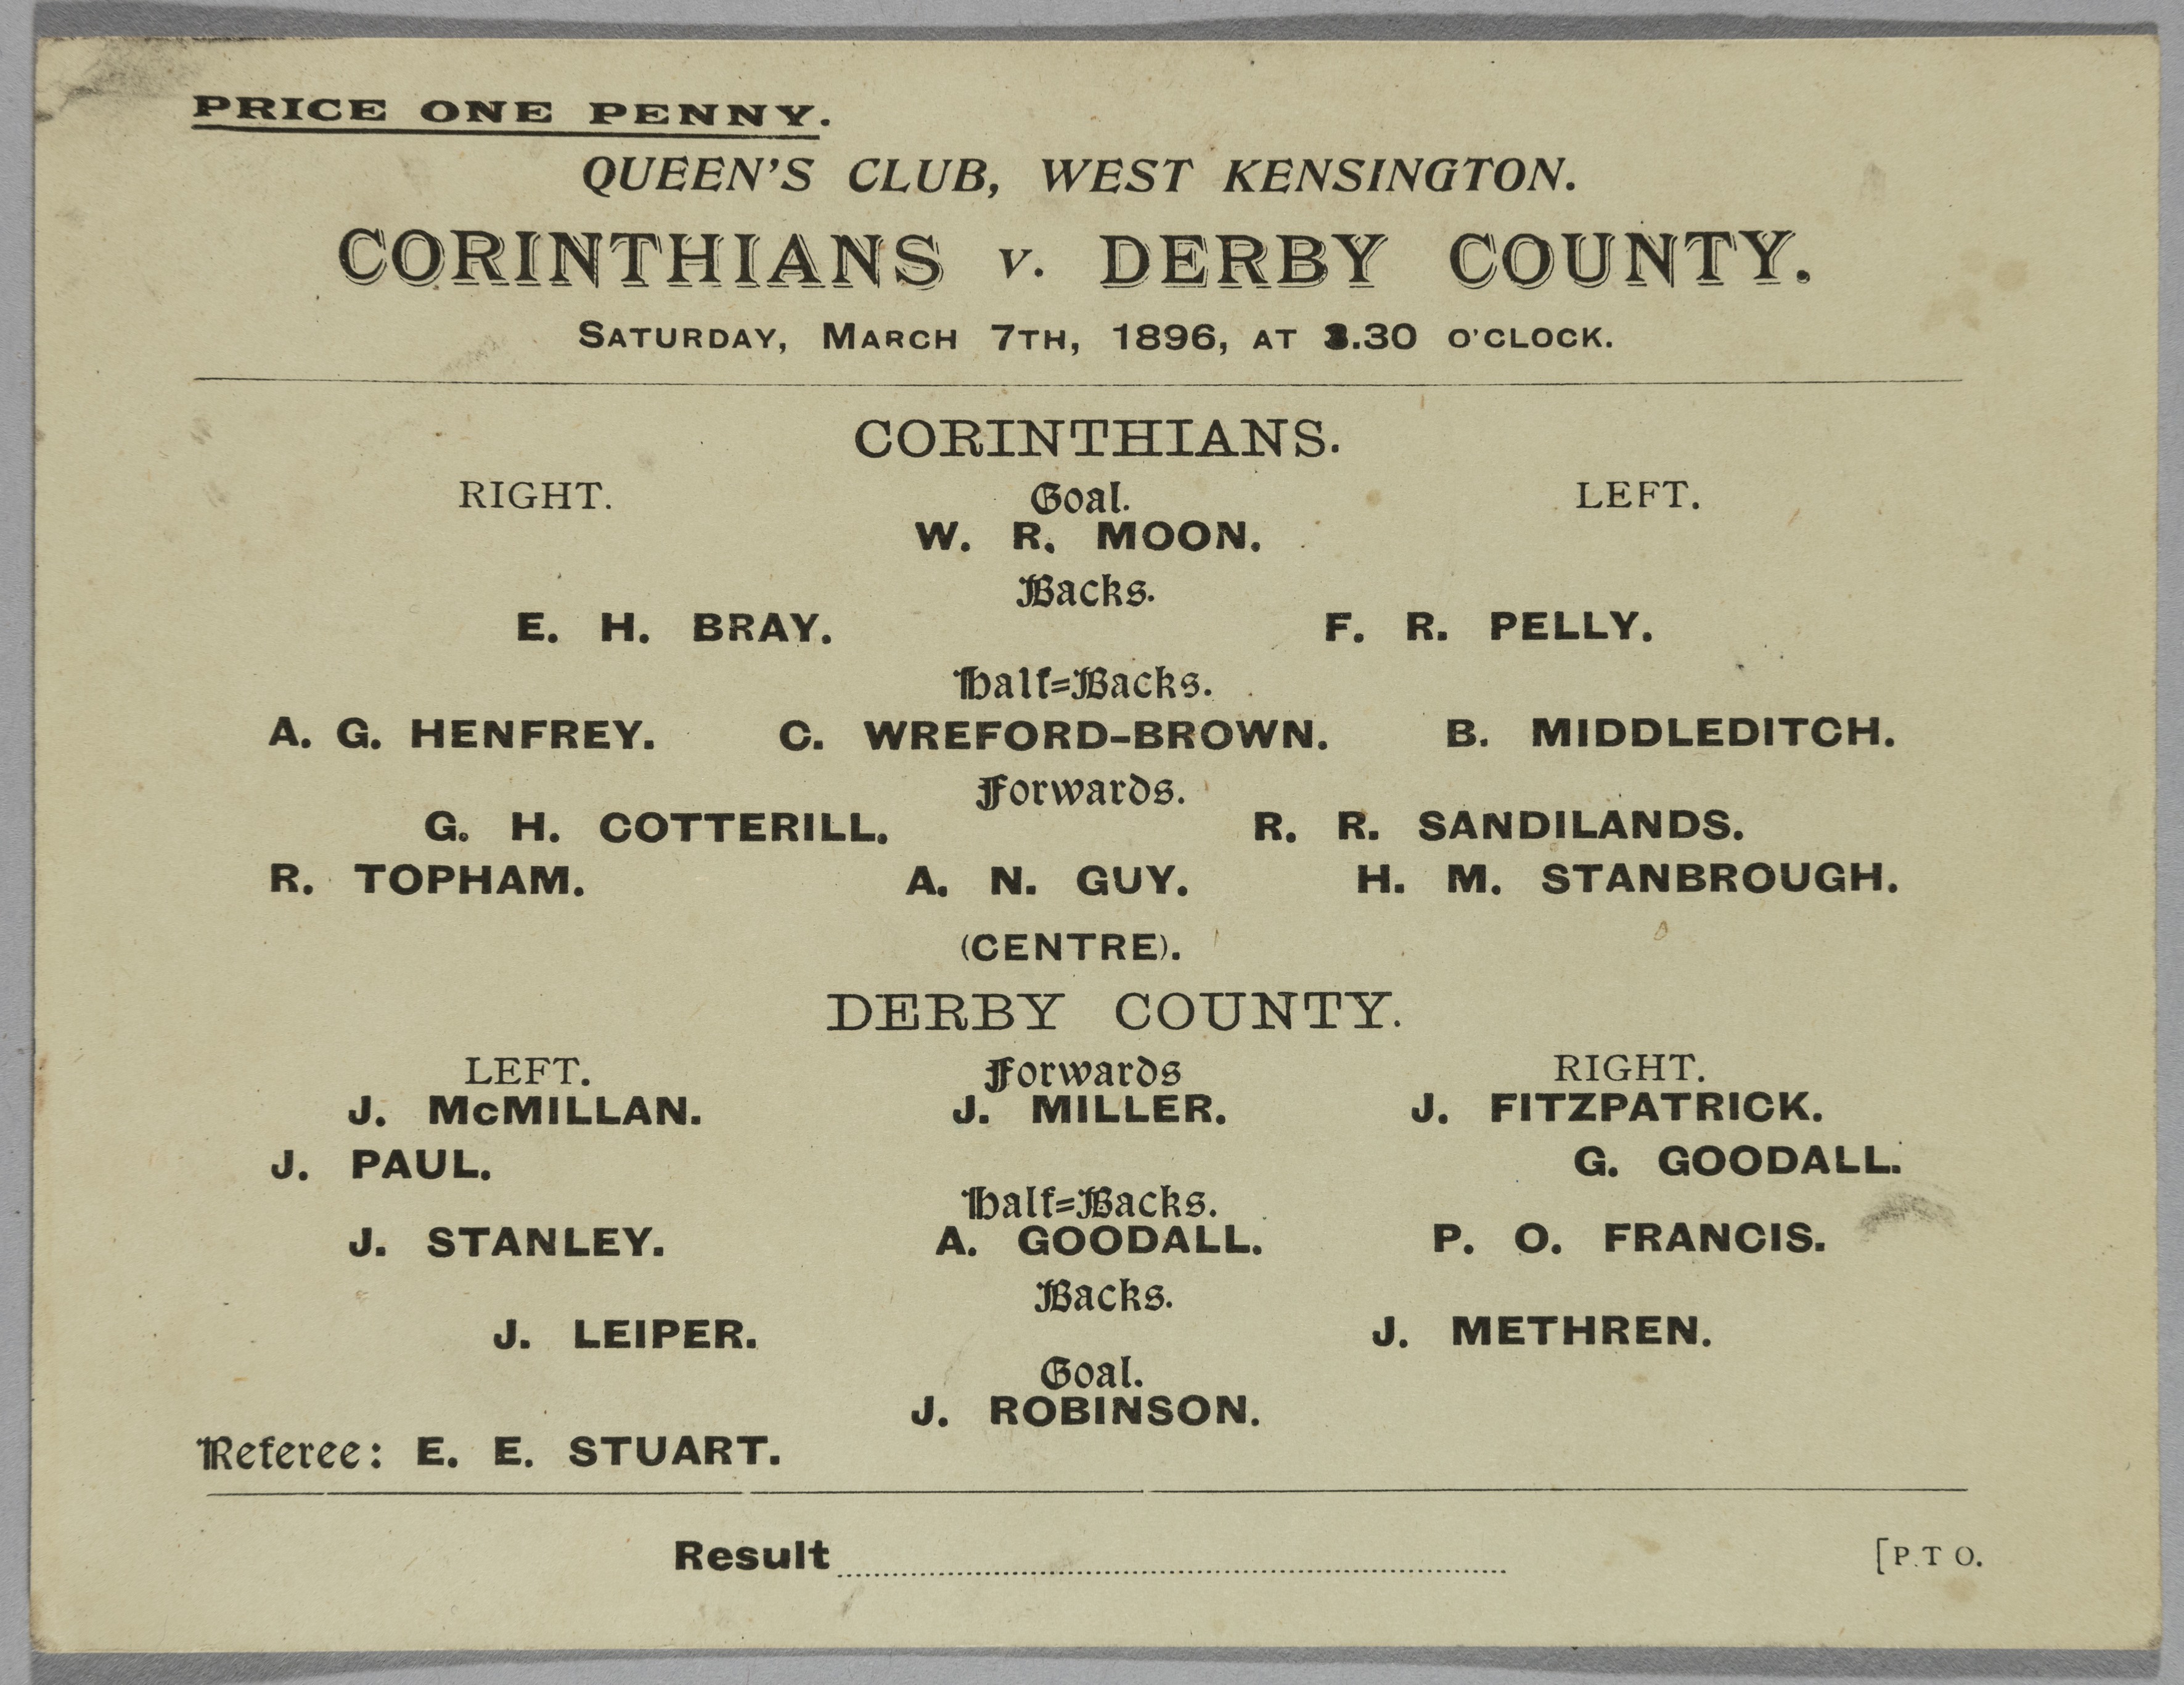 PRICE ONE PENNY.
QUEEN'S CLUB, WEST KENSINGTON.
CORINTHIANS v. DERBY COUNTY.
SATURDAY, MARCH 7TH, 1896, AT 3.30 O'CLOCK.
CORINTHIANS.
RIGHT. Goal. LEFT.
W. R. MOON.
Backs.
E. H. BRAY. F. R. PELLY.
Half=Backs.
A. G. HENFREY. C. WREFORD-BROWN. B. MIDDLEDITCH.
Forwards.
G. H. COTTERILL. R. R. SANDILANDS.
R. TOPHAM. A. N. GUY. H. M. STANBROUGH.
(CENTRE).
DERBY COUNTY.
LEFT. Forwards RIGHT.
J. McMILLAN. J. MILLER. J. FITZPATRICK.
J. PAUL. G. GOODALL.
Half=Backs.
J. STANLEY. A. GOODALL. P. O. FRANCIS.
Backs.
J. LEIPER. J. METHREN.
Goal.
J. ROBINSON.
Referee: E. E. STUART.
Result [P.T O.